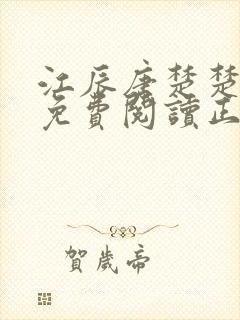 江辰唐楚楚
免費閱讀正
賀歲帝